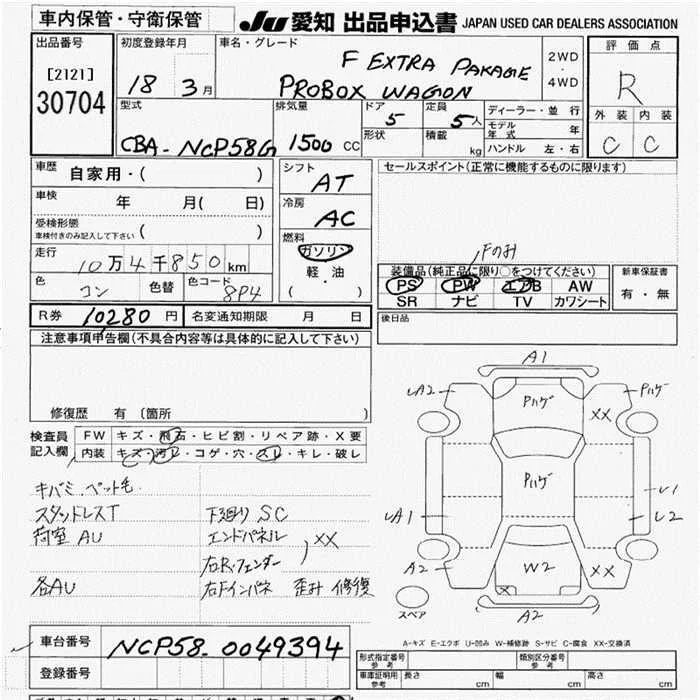 車内保管・守衛保管
JU 愛知 出品申込書 JAPAN USED CAR DEALERS ASSOCIATION
出品番号
[2121]
30704
初度登録年月
18 3月
車名・グレード
F EXTRA PAKAGE
PROBOX WAGON
2WD
・
4WD
評価点
R
外装 内装
C C
型式
CBA-NCP58G
排気量
1500 CC
ドア 5
形状
定員 5人
積載 kg
ディーラー・並行
モデル年式 年
ハンドル 左・右
車歴 自家用・( )
車検 年 月( 日)
受検形態
車検付きのみ記入して下さい ( )
走行
10万4千850km
色 コン 色替 色コード 8P4
シフト
AT
冷房
AC
燃料
ガソリン
・
軽・油
( )
セールスポイント(正常に機能するものに限ります)
Fのみ
装備品(純正品に限り○をつけてください)
PS PW エアB AW
SR ナビ TV カワシート
新車保証書
有・無
後日品
R券 10,280円 名変通知期限 月 日
注意事項申告欄(不具合内容等は具体的に記入して下さい)
修復歴 有(箇所 )
検査員
記入欄
FW キズ・飛石・ヒビ割・リペア跡・X要
内装 キズ・汚レ・コゲ・穴・スレ・キレ・破レ
キバミ、ペット毛
スタッドレスT 下廻り SC
荷室 AU エンドパネル ) XX
右R・フェンダー
各AU 右Fインパネ 歪み 修復
A1
LA2
Pハゲ
Pハゲ
XX
Pハゲ
LA1
L1
L2
A2
W2
X
XX
A2
スペア
A-キズ E-エクボ U-凹み W-補修跡 S-サビ C-腐食 XX-交換済
車台番号 NCP58-0049394
登録番号
形式指定番号
参考
類別区分番号
参考
車庫証明用
参考
長さ 幅 高さ